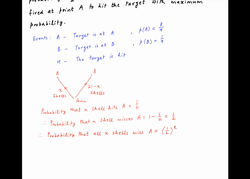 fired at point A to hit the target with maximum
probability.
Events: A - Target is at A , P(A) =
B - Target is at B , P(B) =
H - The target is hit
A B
x 21-x
shells shells
Probability that a shell hits A = 1/2
∴ Probability that a shell misses A = 1 - 1/2 = 1/2
∴ Probability that all x shells miss A = (1/2)^x